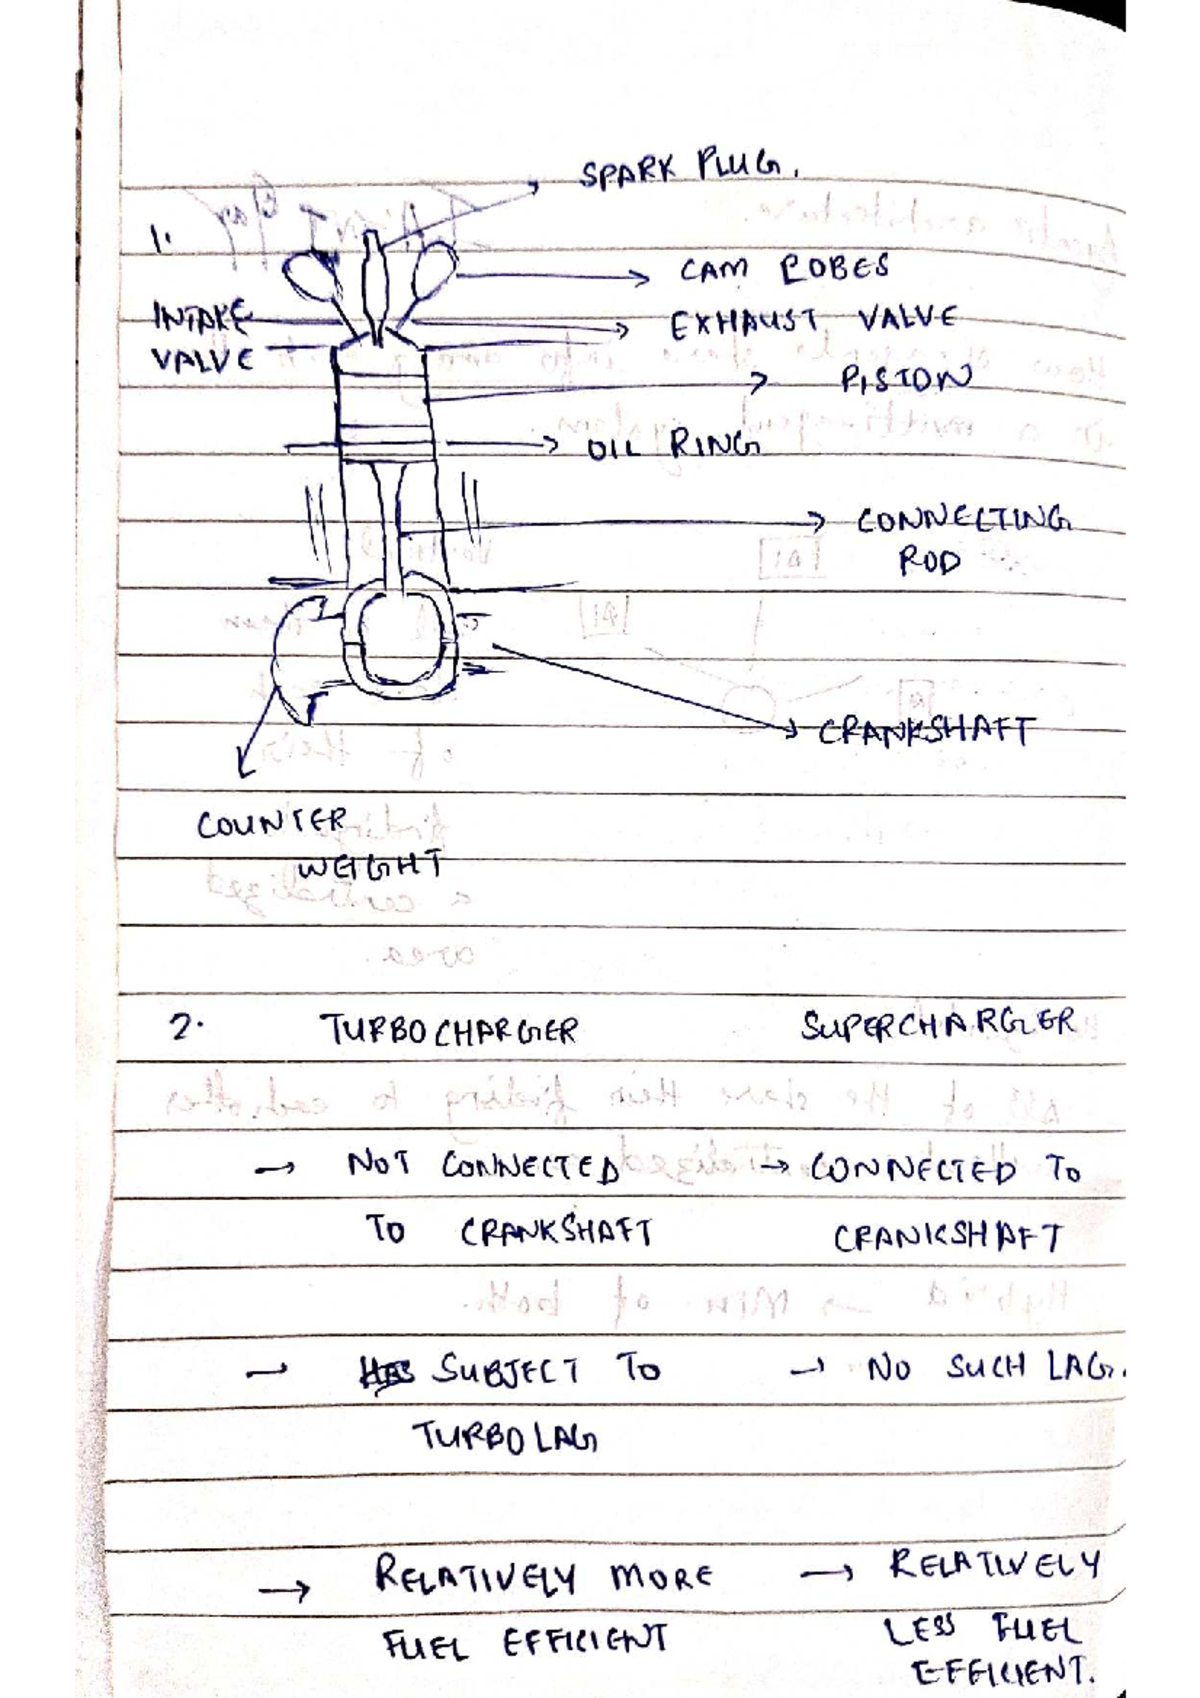 SPARK PLUG.
1.
CAM LOBES
INTAKE
VALVE
EXHAUST VALVE
PISTON
OIL RING
CONNECTING
ROD
CRANKSHAFT
COUNTER
WEIGHT
2. TURBOCHARGER SUPERCHARGER
→ NOT CONNECTED → CONNECTED TO
TO CRANKSHAFT CRANKSHAFT
→ SUBJECT TO → NO SUCH LAG.
TURBO LAG
→ RELATIVELY MORE → RELATIVELY
FUEL EFFICIENT LESS FUEL
EFFICIENT.